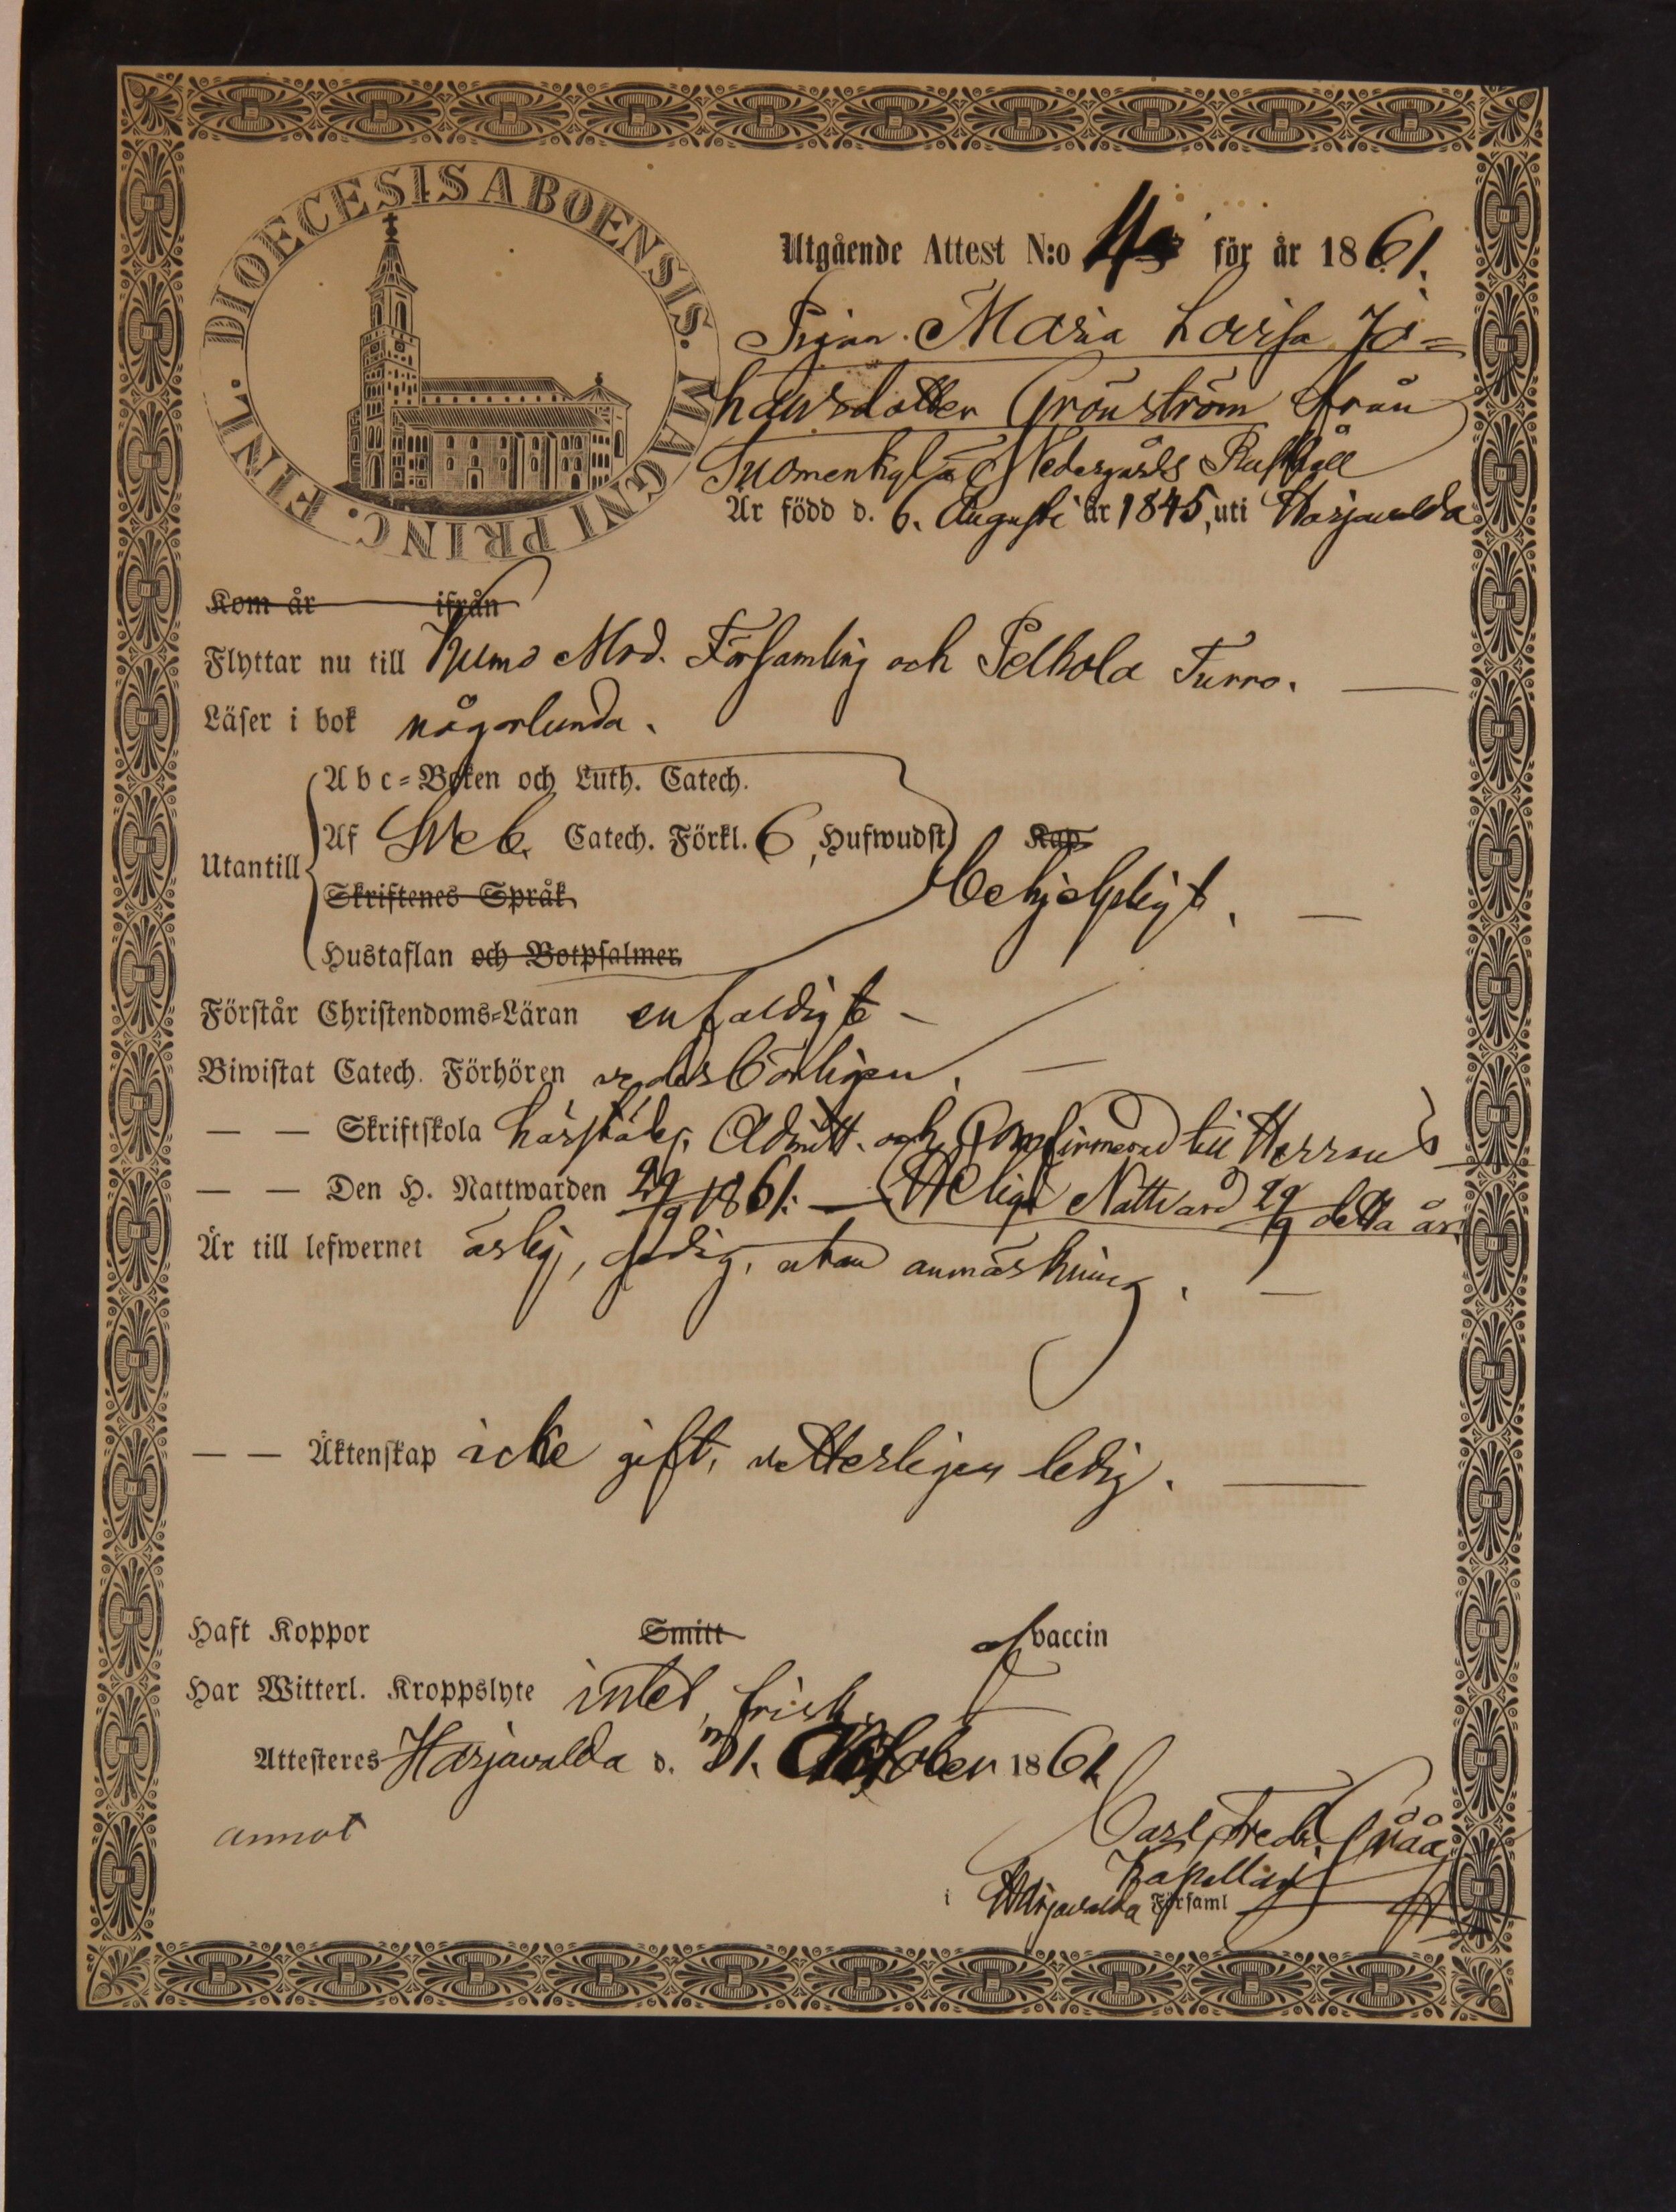 DIOECESIS ABOENSIS. MAGNI PRINC. FINL.
Utgående Attest N:o för år 1861.
Pigan Maria Lovisa Jo=
hansdotter Grönström från
Suomenkylä Nedergårds Rusthåll
Är född d. 6. Augusti år 1845, uti Harjavalda
Kom år ifrån
Flyttar nu till Kumo Mod. Församling och Pelhola Turro.
Läser i bok någorlunda.
Abc=Boken och Luth. Catech.
Af Sveb. Catech. Förkl. 6, Hufwudst Kap.
Utantill
Skriftenes Språk,
behjelpligt.
Hustaflan och Botpsalmer.
Förstår Christendoms=Läran enfaldigt
Biwistat Catech. Förhören vederbörligen.
— — Skriftskola härstädes. Admitt. och Confirmerad till Herrans
— — Den H. Nattwarden 29/9 1861. — Heliga Nattvard 29/9 detta år.
Är till lefwernet ärlig, sedig, utan anmärkning.
— — Äktenskap icke gift, vetterligen ledig.
Haft Koppor Smitt af vaccin
Har Witterl. Kroppslyte intet, frisk.
Attesteres Harjavalda d. 31. Oktober 1861
annot
Carl Fredr. Gråå
Kapellan
i Harjavalda Församl